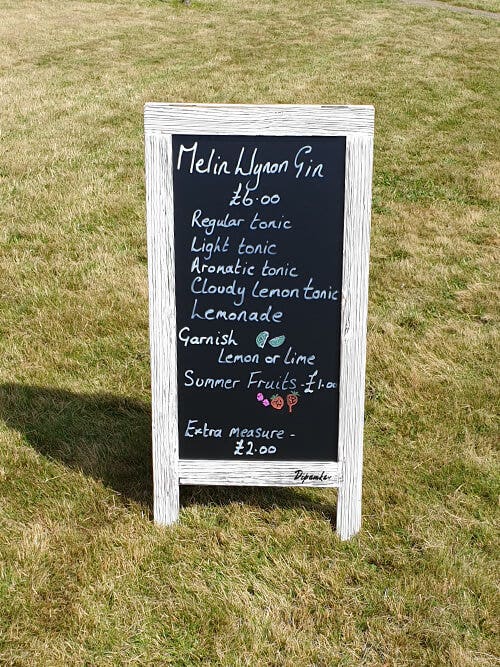 Melin Llynon Gin
£6.00
Regular tonic
Light tonic
Aromatic tonic
Cloudy Lemon tonic
Lemonade
Garnish
Lemon or Lime
Summer Fruits - £1.00
Extra measure -
£2.00